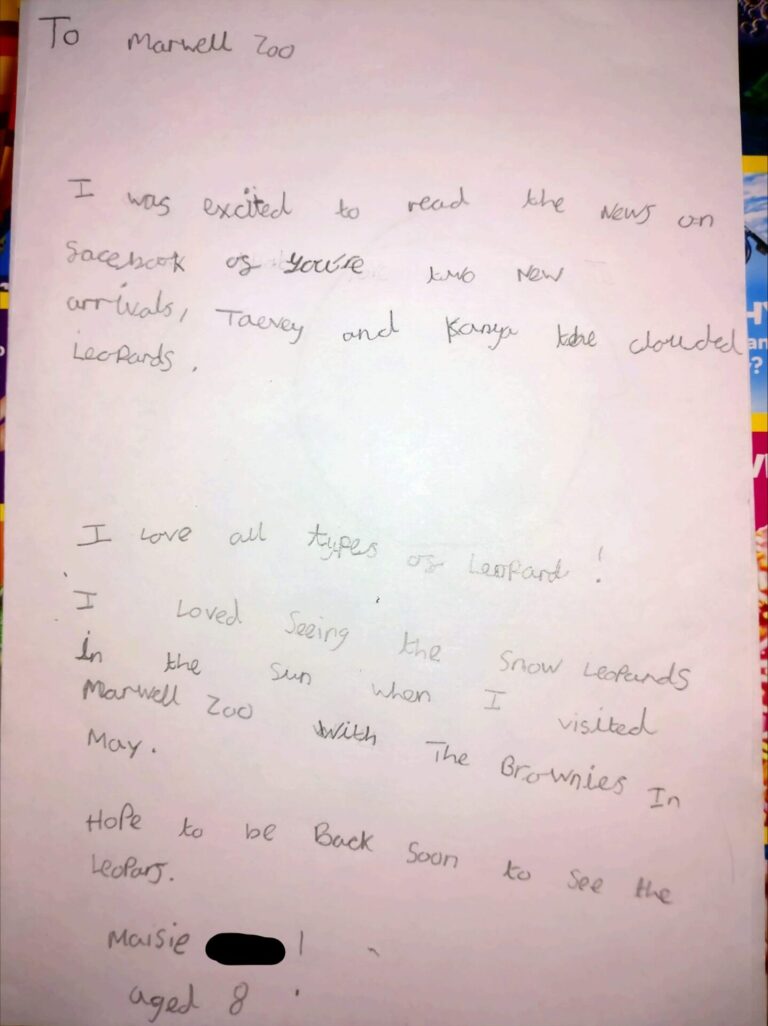 To Marwell Zoo
I was excited to read the News on
facebook of you're two New
arrivals, Taevey and Kanya the clouded
Leopards.
I Love all types of Leopard!
I Loved Seeing the Snow Leopards
in the sun when I visited
Marwell Zoo with The Brownies In
May.
Hope to be Back Soon to see the
Leopars.
Maisie !
aged 8
H
an
?